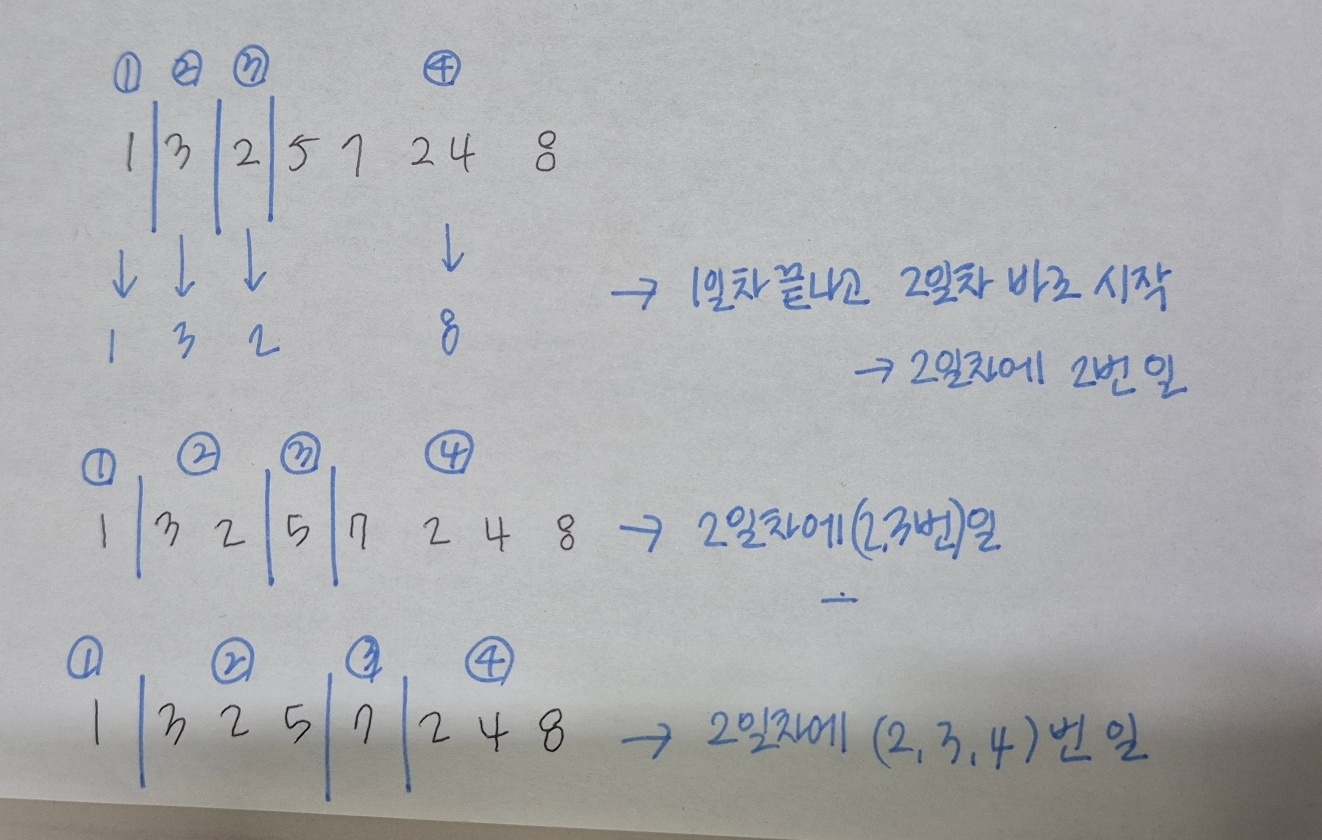 ① ② ③ ④
1 | 3 | 2 | 5 7 2 4 8
↓ ↓ ↓ ↓
1 3 2 8
→ 1일차 끝나고 2일차 바로 시작
→ 2일차에 2번 일
① ② ③ ④
1 | 3 2 | 5 | 7 2 4 8 → 2일차에 (2,3번)일
① ② ③ ④
1 | 3 2 5 | 7 | 2 4 8 → 2일차에 (2, 3, 4)번 일